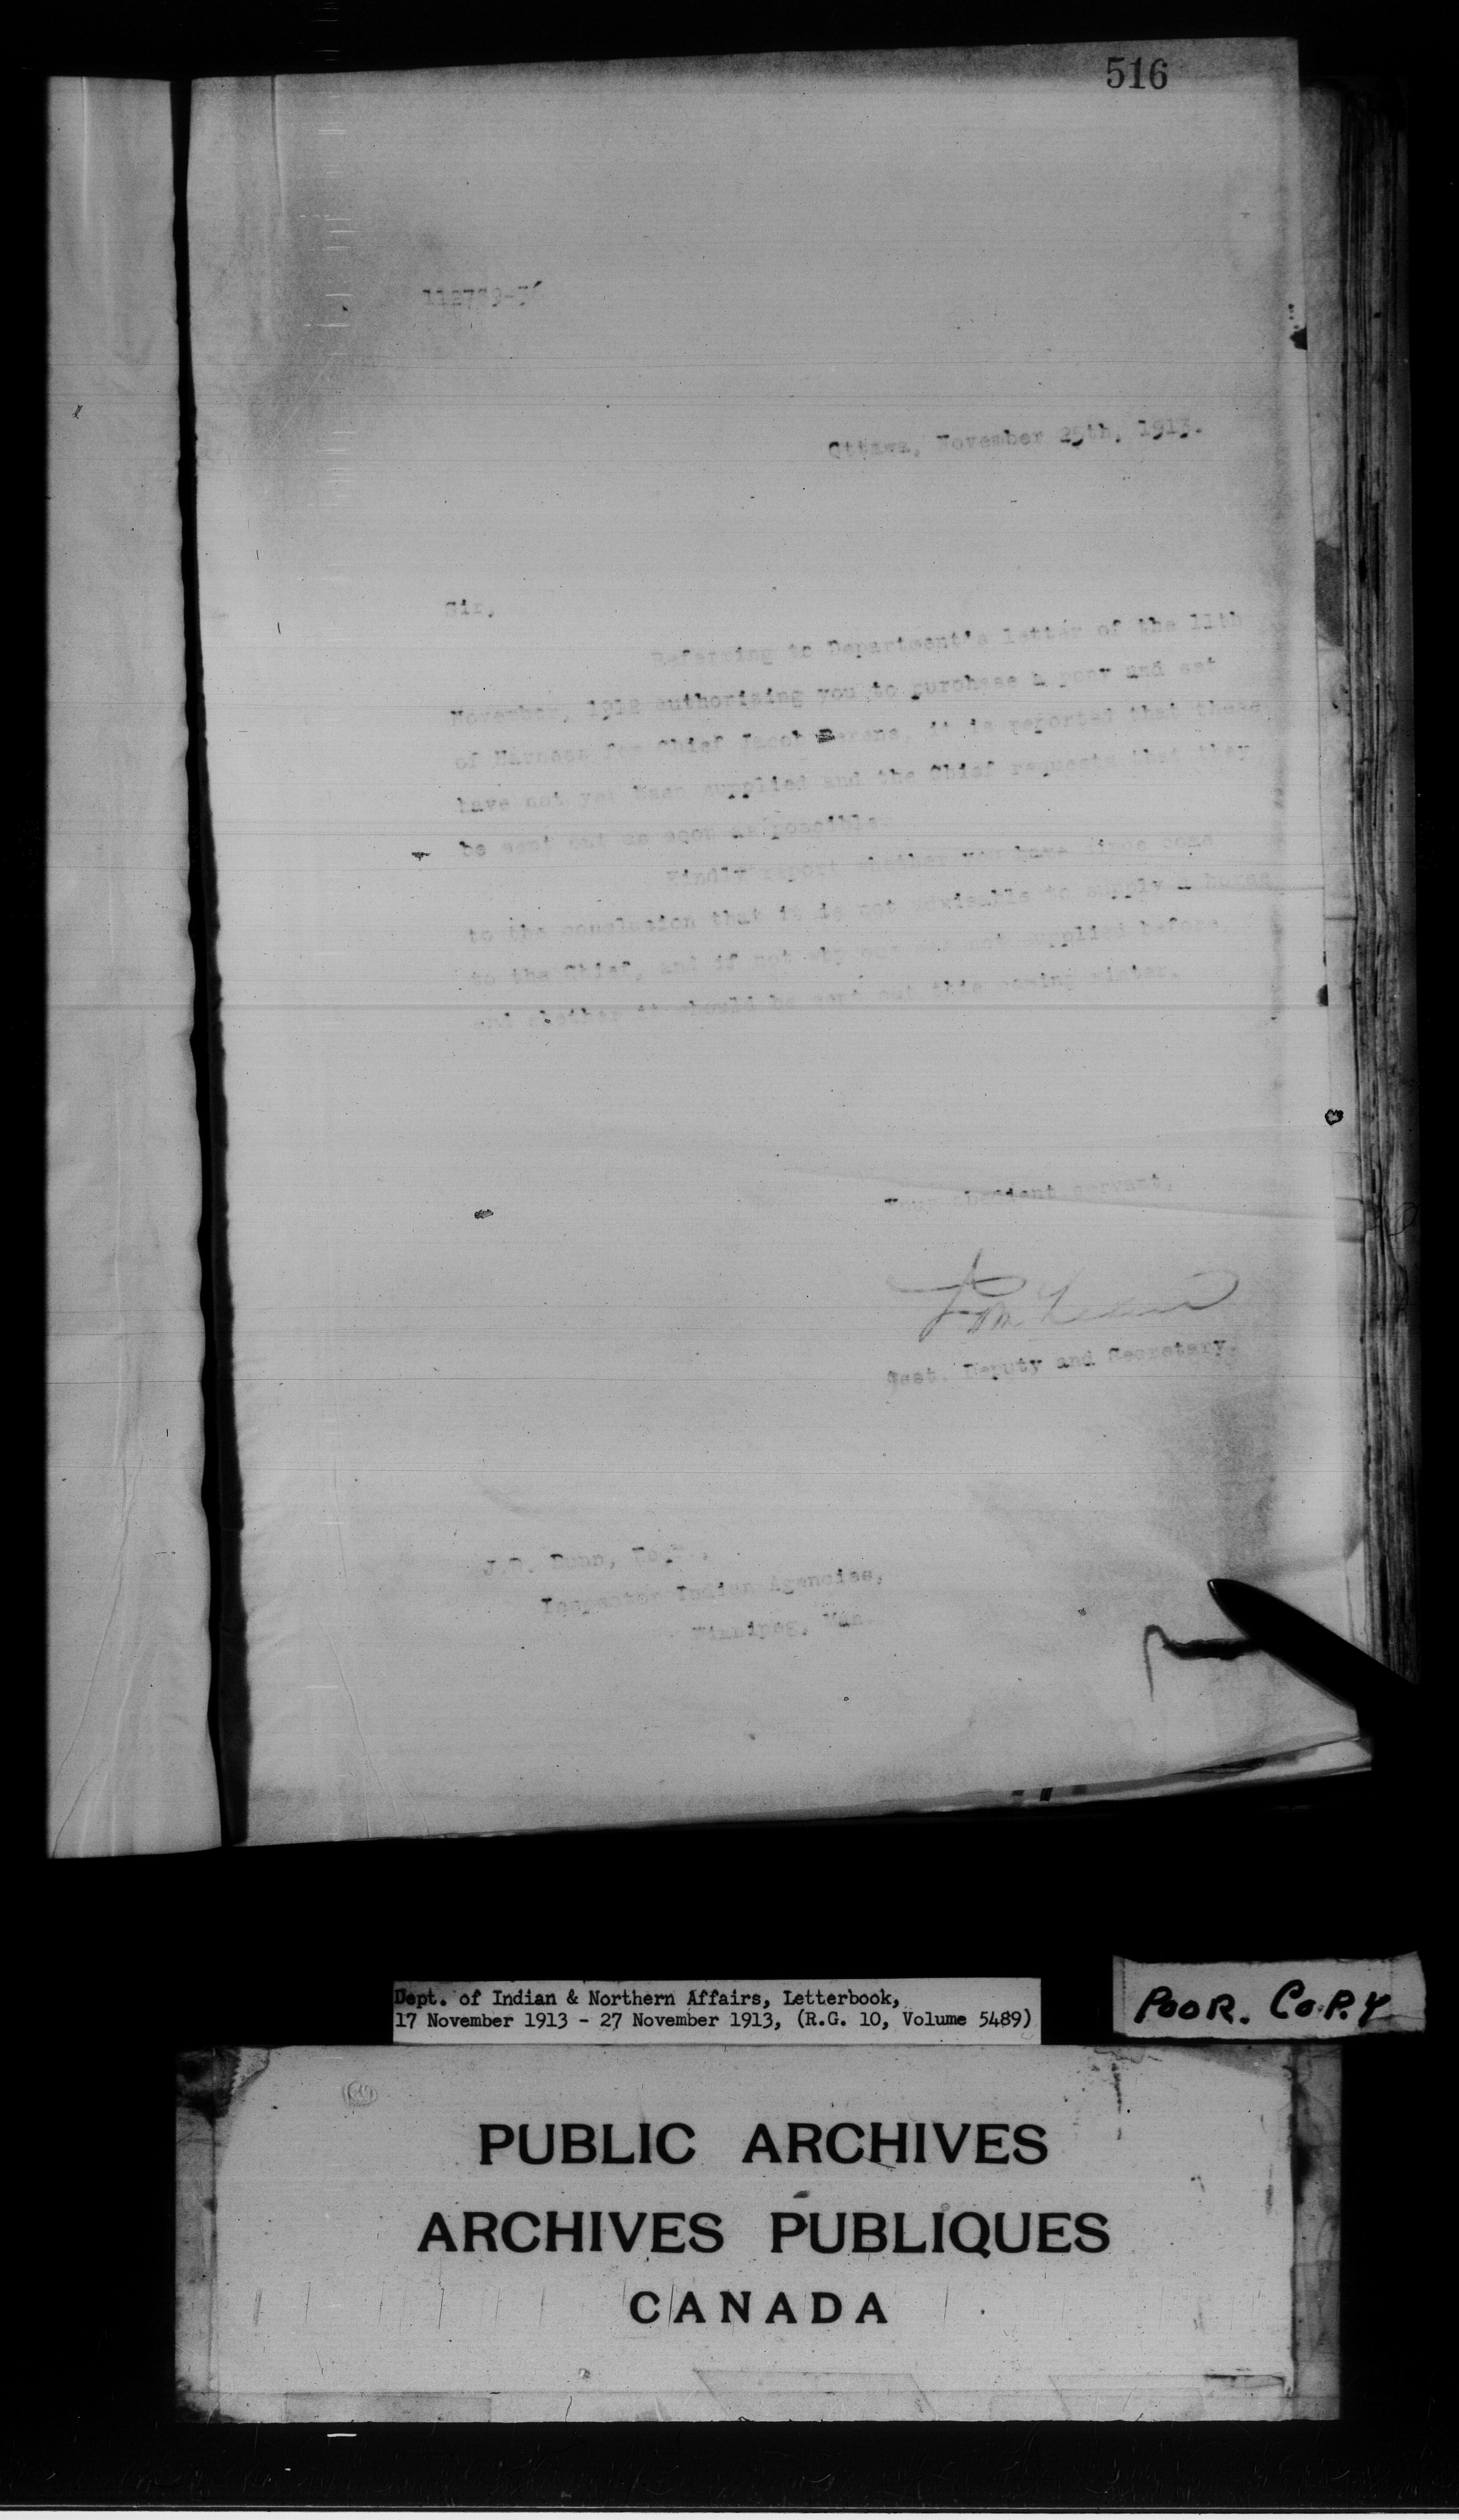 516
Ottawa, November 25th, 1913.
Sir,
Referring to Department's letter of the 11th
November, 1912 authorizing you to purchase a pony and set
of Harness for Chief Jacob Berens, it is reported that these
have not yet been supplied and the Chief requests that they
be sent out as soon as possible.
Kindly report whether you have since come
to the conclusion that it is not advisable to supply a horse
to the Chief, and if not why one was not supplied before
and whether it should be sent out this coming winter.
Your obedient servant,
Asst. Deputy and Secretary.
Inspector Indian Agencies,
Winnipeg, Man.
Dept. of Indian & Northern Affairs, Letterbook,
17 November 1913 - 27 November 1913, (R.G. 10, Volume 5489)
POOR. COPY
PUBLIC ARCHIVES
ARCHIVES PUBLIQUES
CANADA